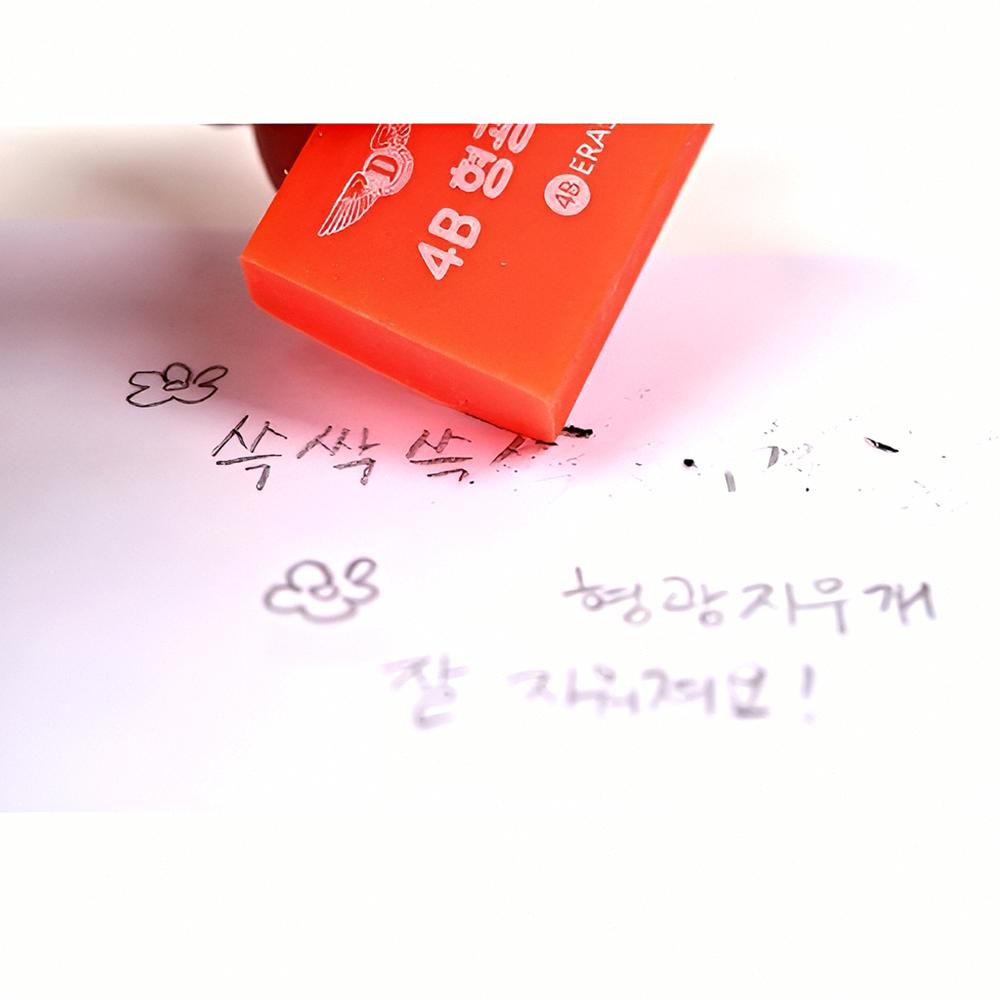 4B 형광
4B ERAS
쓱싹쓱
형광지우개
잘 지워져요!